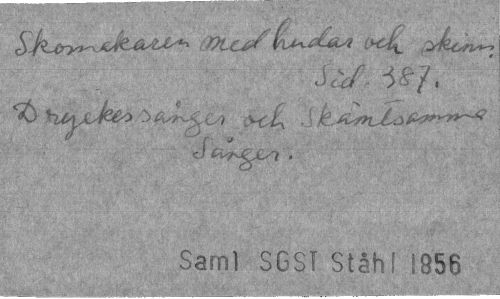 Skomakaren med hudar och skinn.
Sid. 387.
Dryckessånger och Skämtsamma
Sånger.
Saml SGST Ståhl 1856